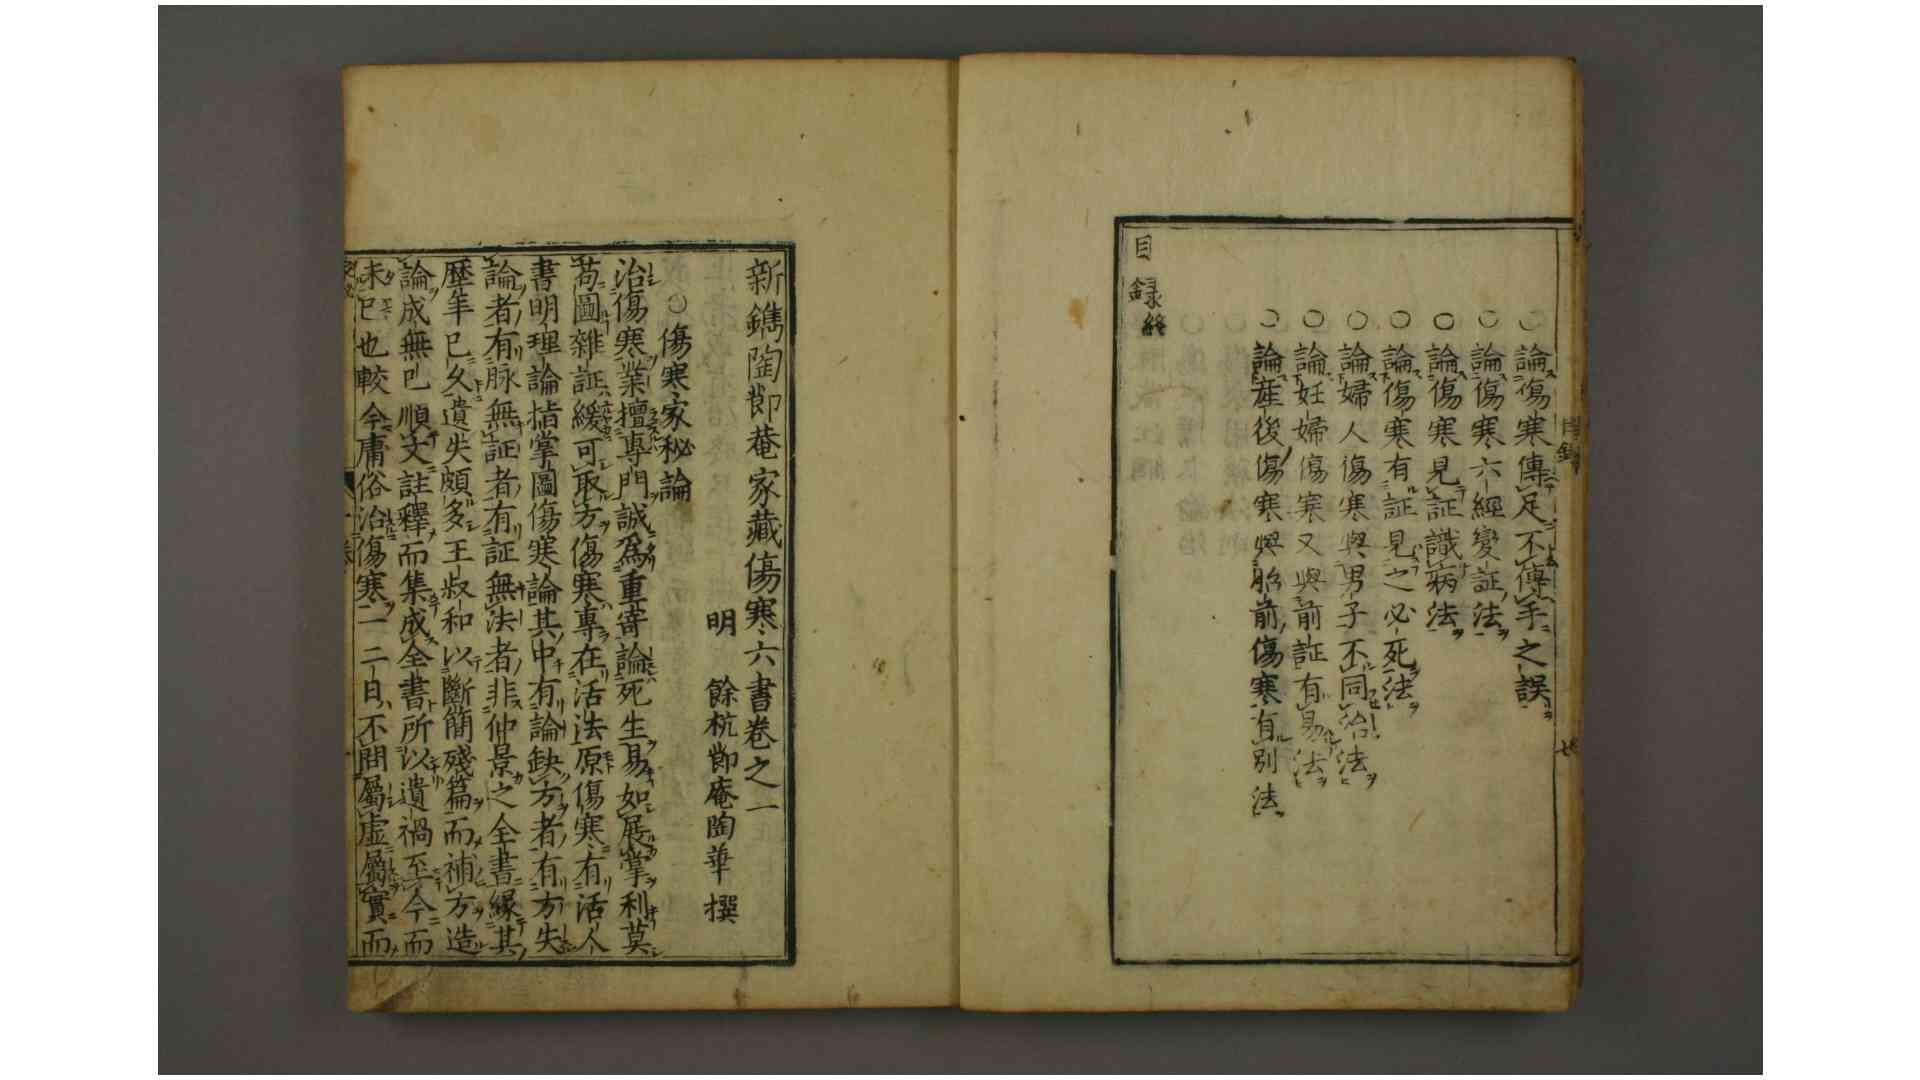 ○論傷寒傳足不傳手之誤
○論傷寒六經變証法
○論傷寒見証識病法
○論傷寒有証見之必死法
○論婦人傷寒與男子不同治法
○論妊婦傷寒又與前証有易法
○論産後傷寒與胎前傷寒有別法
目録終
新鐫陶節菴家藏傷寒六書卷之一
明 餘杭節庵陶華撰
○傷寒家秘論
治傷寒業擅專門誠爲重寄論死生易如展掌利莫
苟圖雜証緩可取方傷寒專在活法原傷寒有活人
書明理論指掌圖傷寒論其中有論缺方者有方失
論者有脉無証者有証無法者非仲景之全書緣其
歷年已久遺失頗多王叔和以斷簡殘篇而補方造
論成無已順文註釋而集成全書所以遺禍至今而
未已也較今庸俗治傷寒一二日不問屬虛屬實而